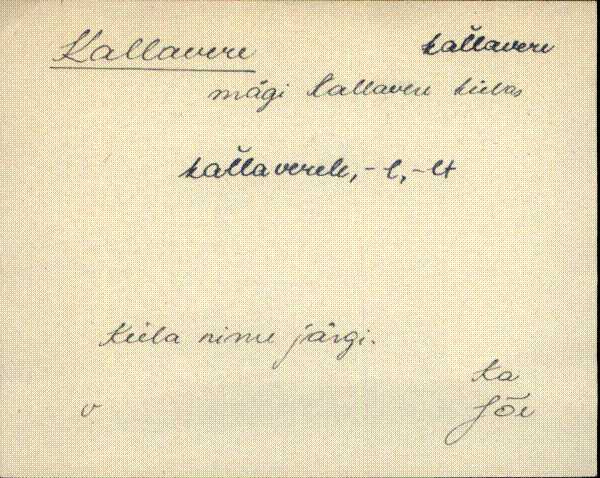 Kallavere kallavere
mägi Kallavere külas
kallaverele, -l, -lt
Küla nime järgi.
Ka
v Jõe